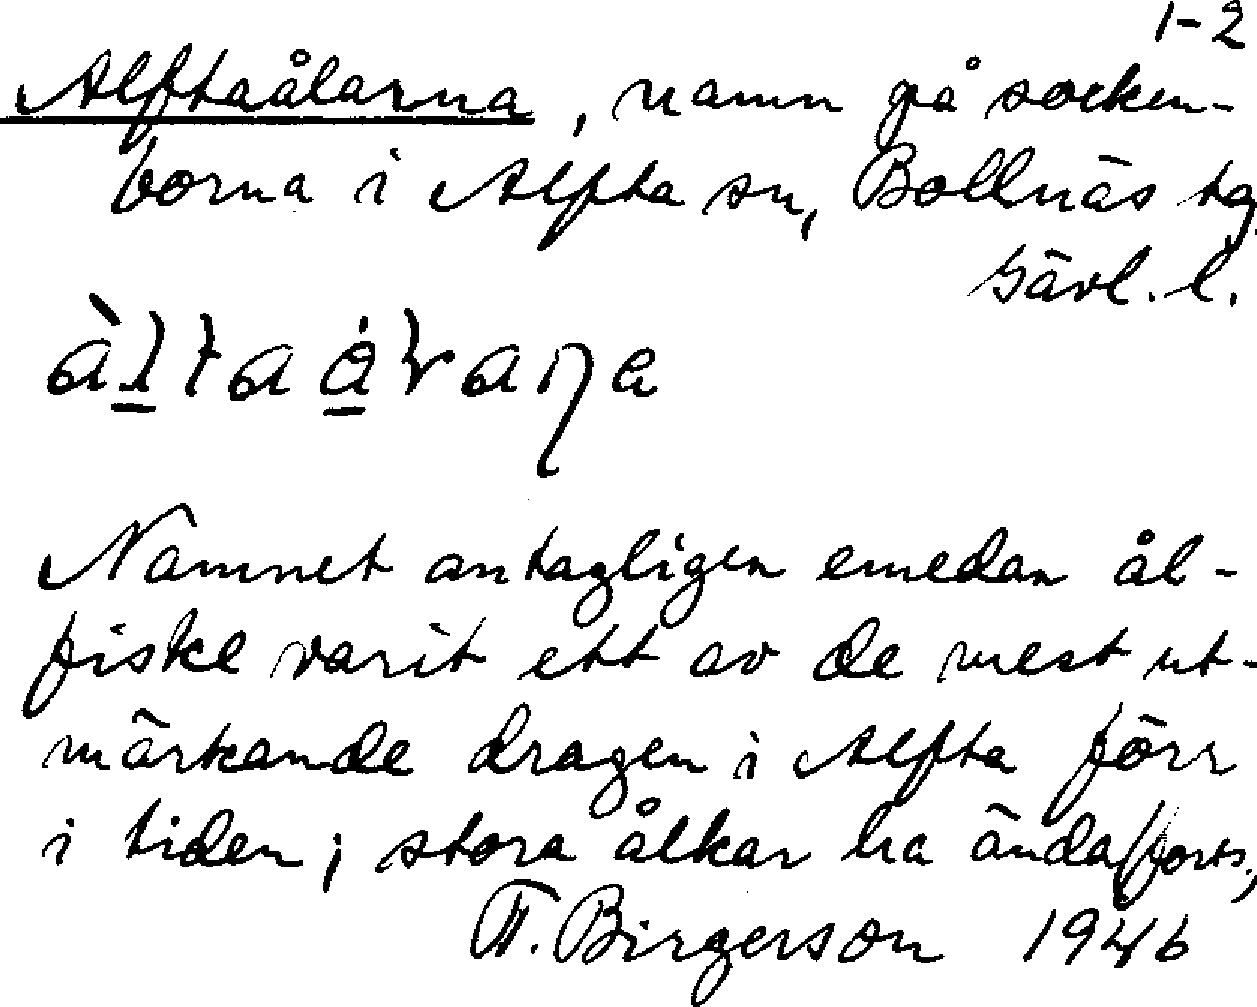 1-2
Alftaålarna, namn på socken-
borna i Alfta sn, Bollnäs tg
Gävl. l.
Namnet antagligen emedan ål-
fiske varit ett av de mest ut-
märkande dragen i Alfta förr
i tiden; stora ålkar ha ända (forts.)
T. Birgerson 1946